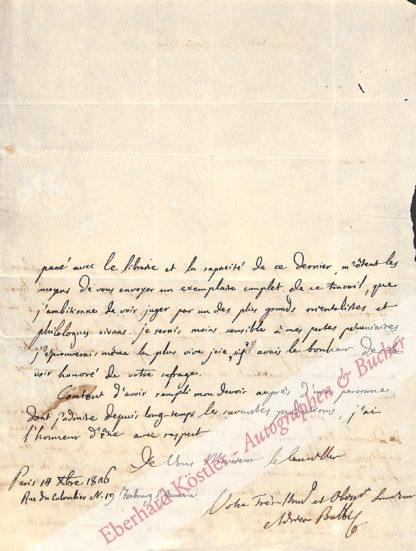 passé avec le libraire et la rapacité de ce dernier, m'ôtent les
moyens de vous envoyer un exemplaire complet de ce travail, que
j'ambitionne de voir juger par un des plus grands orientalistes et
philologues vivans. je serais moins sensible à mes pertes pécuniaires
j'éprouverais même la plus vive joie, si j'avais le bonheur de le
voir honoré du votre sufrage.
Content d'avoir rempli mon devoir auprès d'une personne
dont j'admire depuis long-temps les savantes productions, j'ai
l'honneur d'être avec respect
De Vous Monsieur le Conseiller
Paris 14 Xbre 1826
Rue du Colombier N. 19 Faubourg St Germain
Votre Très-humb et Obéiss Serviteur
Adrien Balbi
Eberhard Köstler - Autographen & Bücher